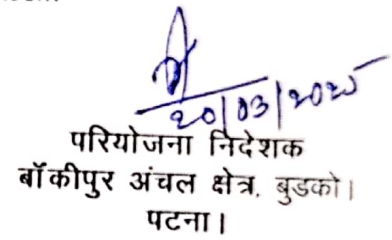 20/03/2025
परियोजना निदेशक
बाँकीपुर अंचल क्षेत्र, बुडको।
पटना।